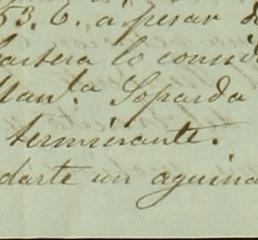 53. E. a pesar d
cartera lo consid
Man.la Soparda
terminante.
darte un aguina